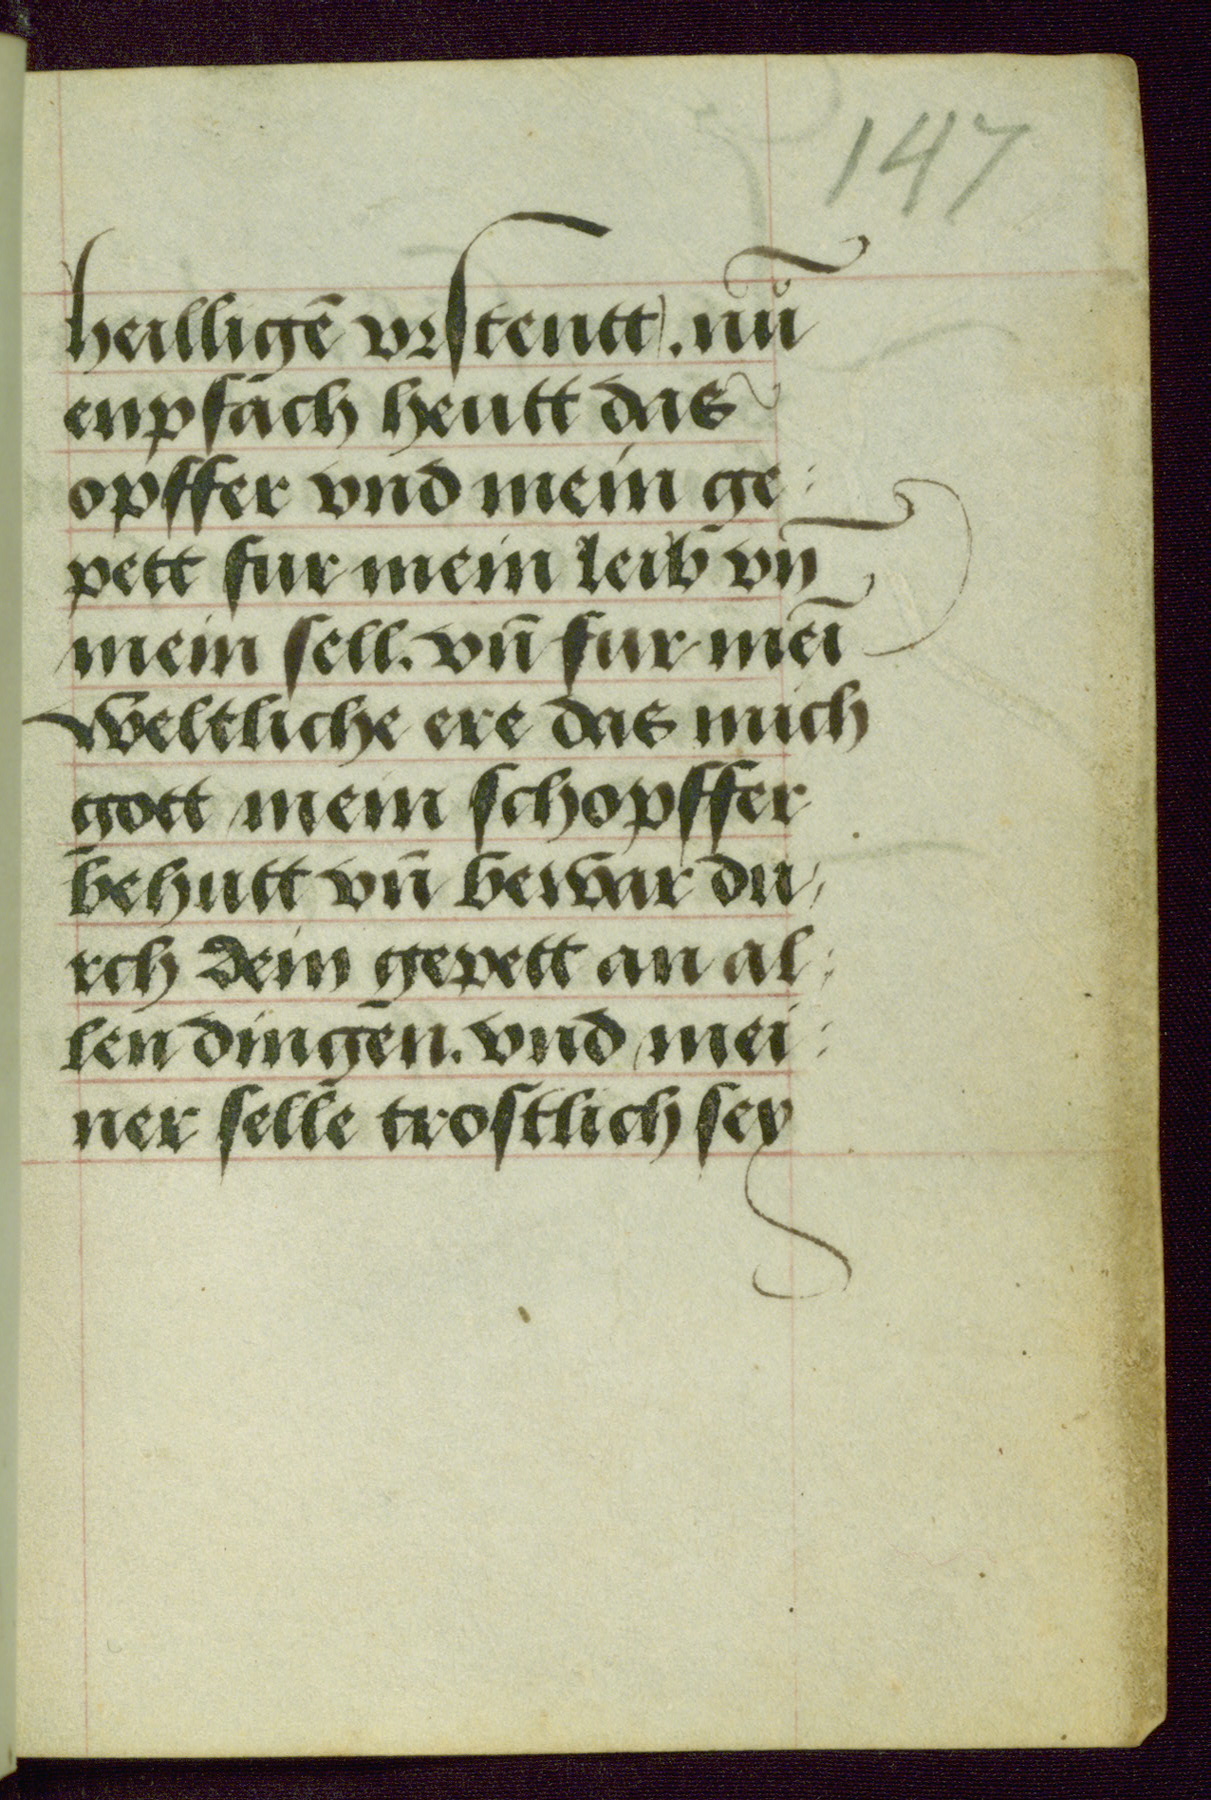 147
heilligē vrstentt. nūn
enpfach heutt das
opffer vnd mein ge:
pett fur mein leib vn̄
mein sell. vn̄ fur mei̅
weltliche ere das mich
gott mein schopffer
behutt vn̄ bewar du,
rch dein gepett an al:
len dingen. vnd mei:
ner selle trostlich sey